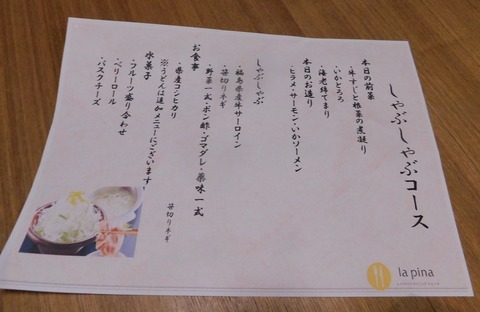 しゃぶしゃぶコース
本日の前菜
・牛すじと根菜の煮凝り
・いかとろろ
・海老綿てまり
本日のお造り
・ヒラメ・サーモン・いかソーメン
しゃぶしゃぶ
・福島県産牛サーロイン
・笹切りネギ
・野菜一式・ポン酢・ゴマダレ・薬味一式
お食事
・県産コシヒカリ
※うどんは追加メニューにございます
水菓子
・フルーツ盛り合わせ
・ベリーロール
・バスクチーズ
笹切りネギ
la pina